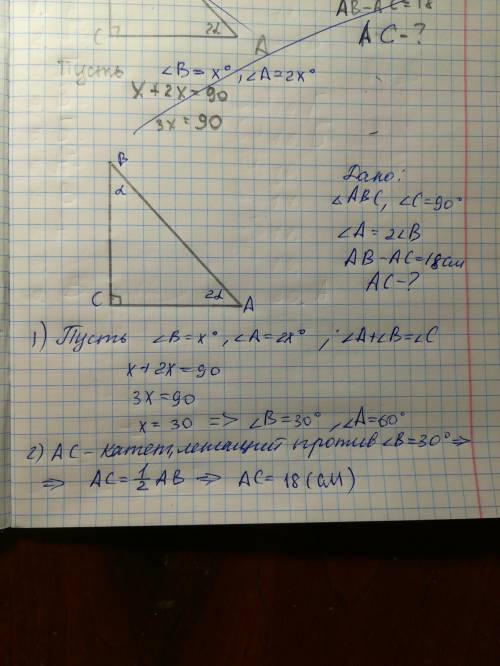 AB-AC=18
AC-?
C
2α
A
Пусть ∠B=x°, ∠A=2x°
x+2x=90
3x=90
B
α
C
2α
A
Дано:
△ABC, ∠C=90°
∠A=2∠B
AB-AC=18см
AC-?
1) Пусть ∠B=x°, ∠A=2x°; ∠A+∠B=∠C
x+2x=90
3x=90
x=30 => ∠B=30°, ∠A=60°
2) AC-катет, лежащий против ∠B=30° =>
=> AC=1/2 AB => AC=18(см)